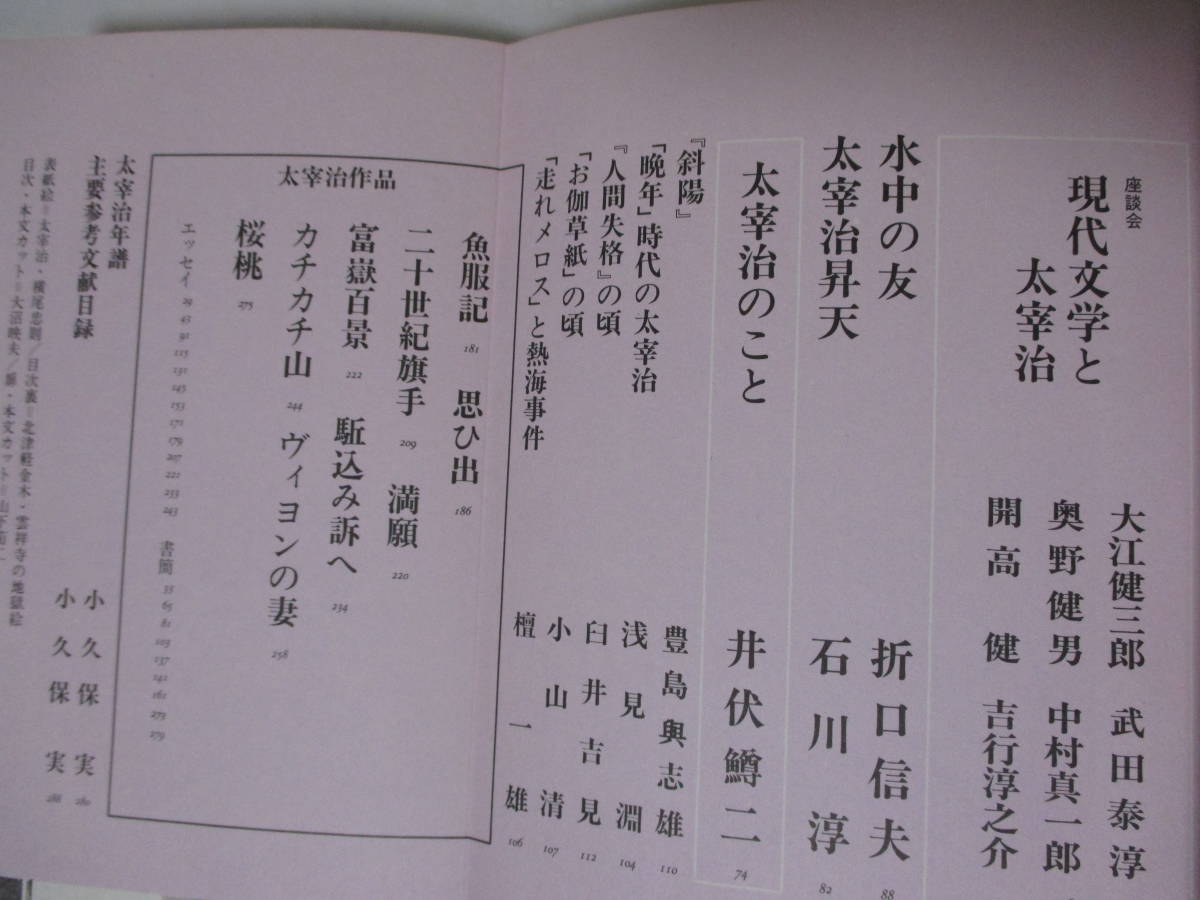 座談会
現代文学と
太宰治
大江健三郎 武田泰淳
奥野健男 中村真一郎
開高健 吉行淳之介
水中の友 折口信夫 88
太宰治昇天 石川淳 82
太宰治のこと 井伏鱒二 74
『斜陽』 豊島與志雄 110
「晩年」時代の太宰治 浅見淵 104
『人間失格』の頃 臼井吉見 112
「お伽草紙」の頃 小山清 107
「走れメロス」と熱海事件 檀一雄 106
太宰治作品
魚服記 181 思ひ出 186
二十世紀旗手 209 満願 220
富嶽百景 222 駈込み訴へ 234
カチカチ山 244 ヴィヨンの妻 258
桜桃 275
エッセイ 29 43 91 115 131 145 153 171 179 207 221 233 243 書簡 33 65 81 103 137 141 161 273 279
太宰治年譜 小久保実 280
主要参考文献目録 小久保実 288
表紙絵=太宰治・横尾忠則/目次裏=北津軽金木・雲祥寺の地獄絵
目次・本文カット=大沼映夫/扉・本文カット=山下菊二